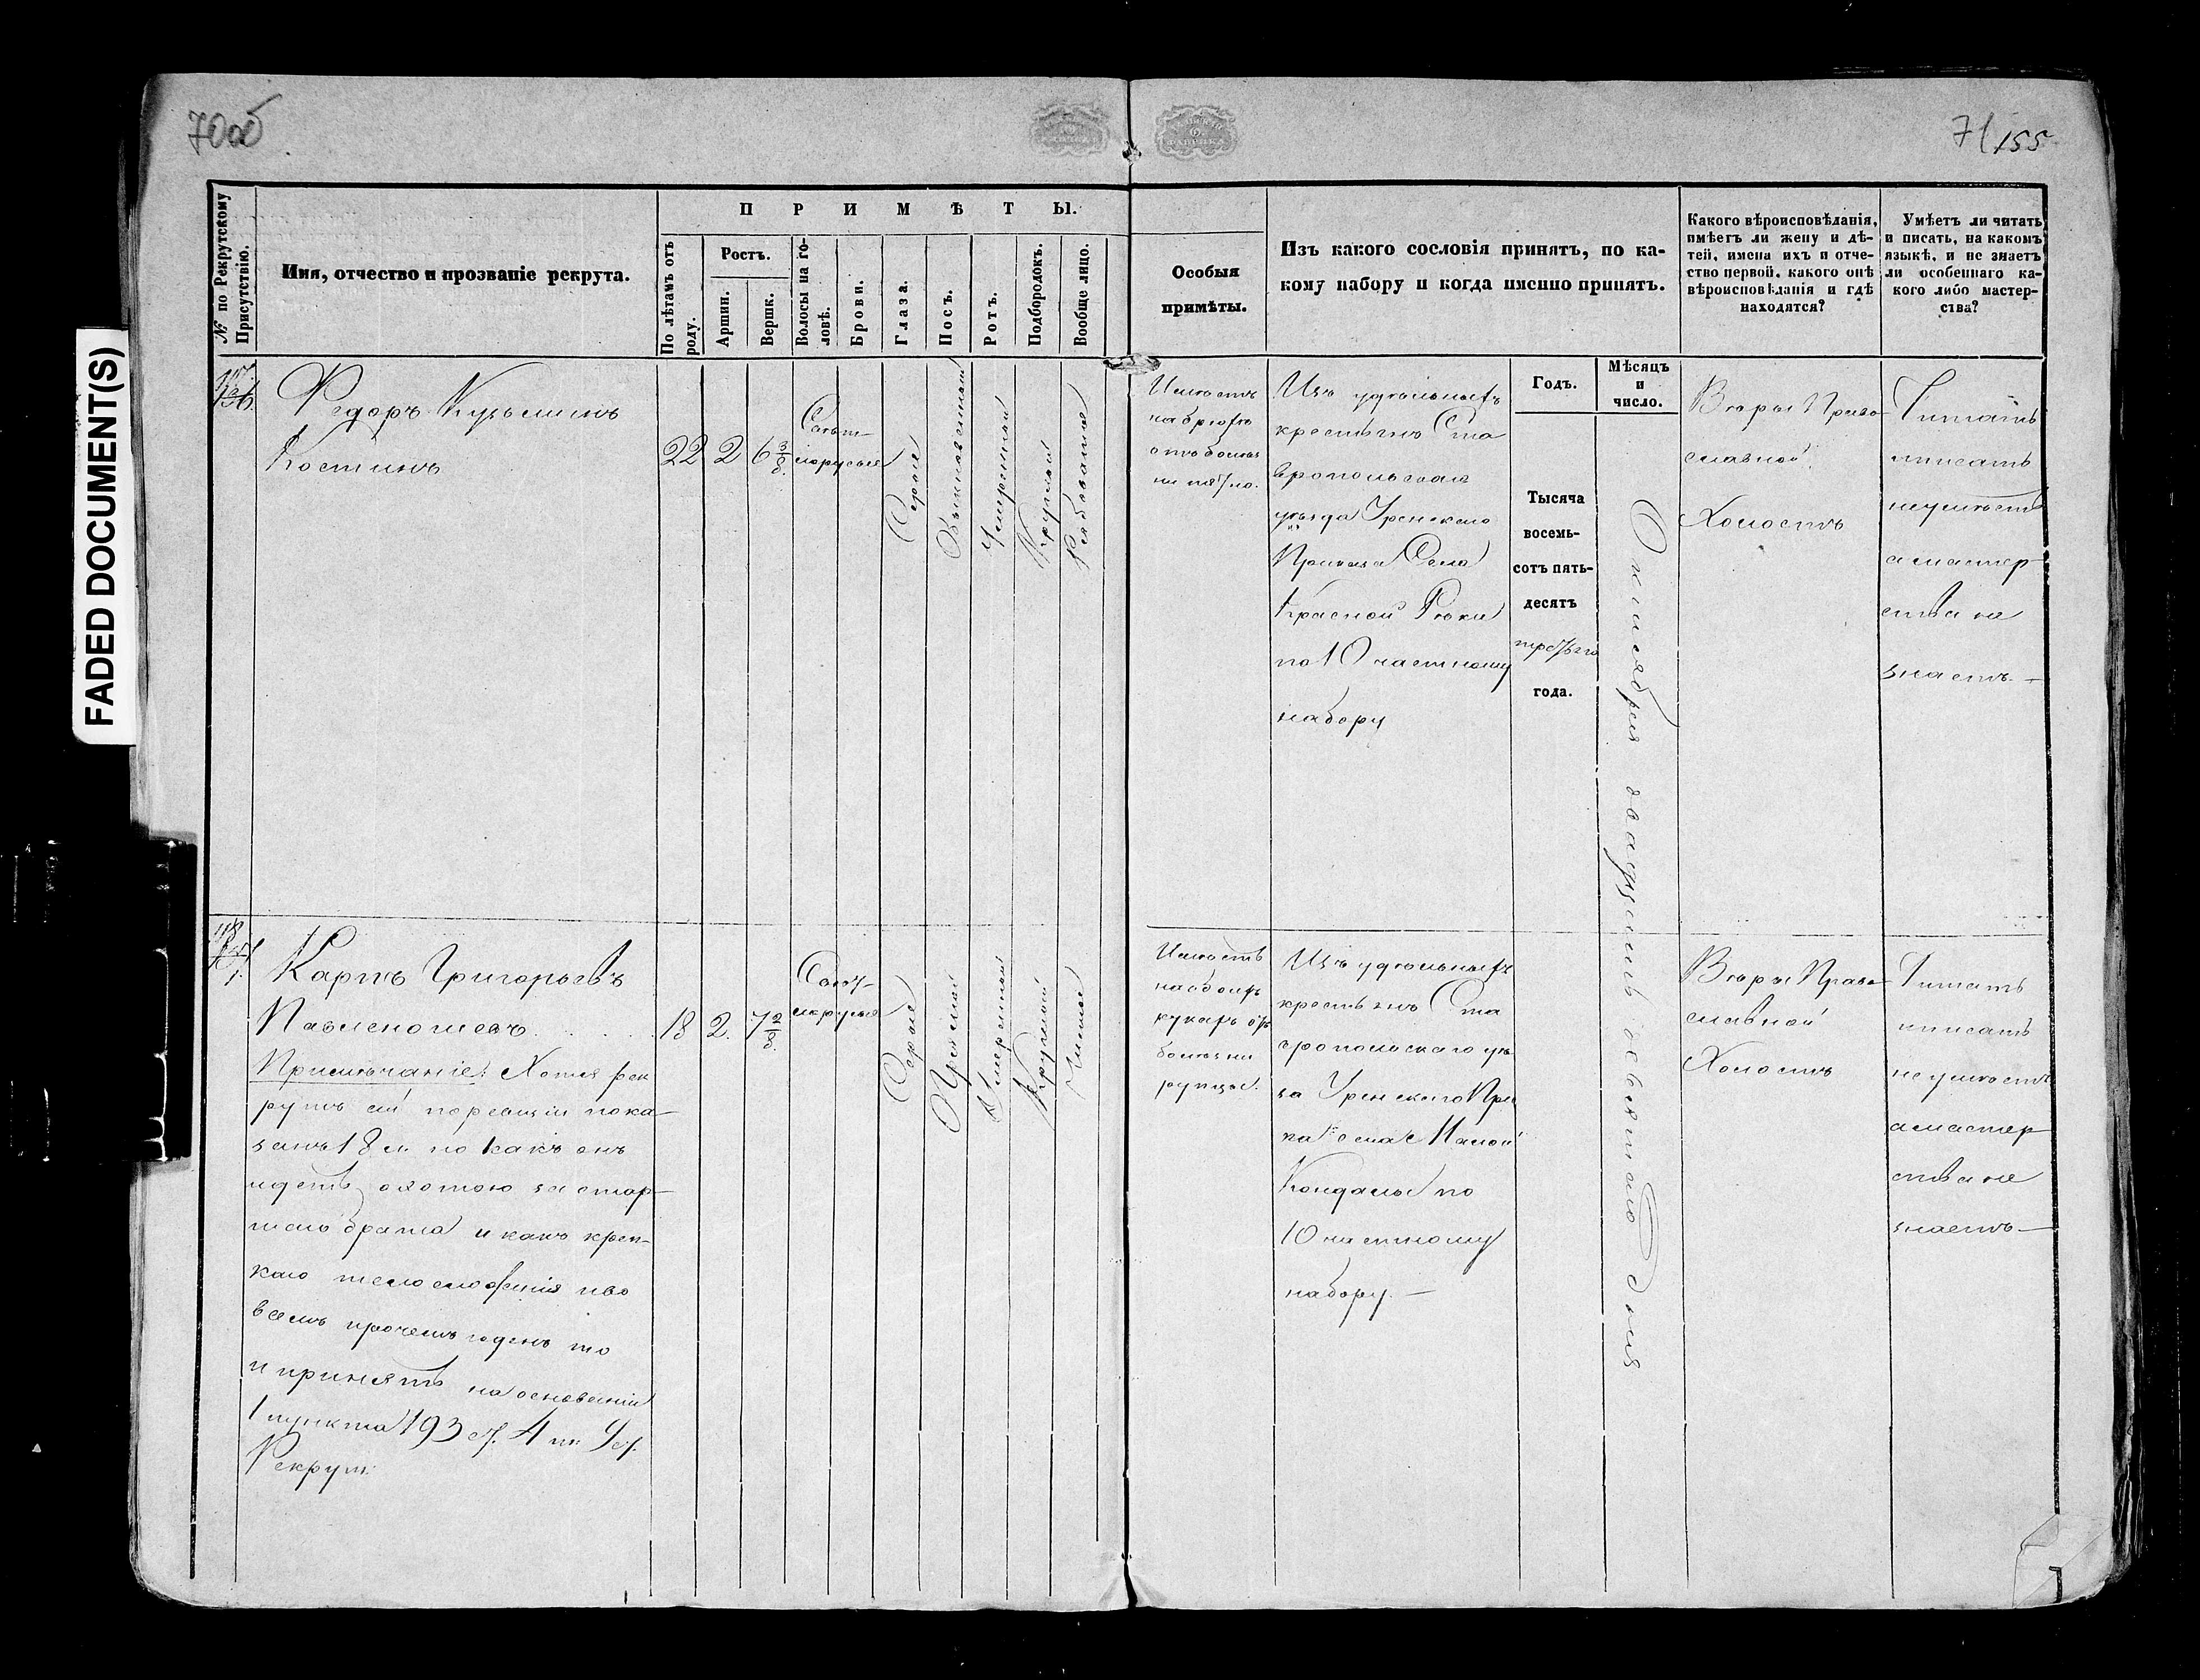 70об
71/155
FADED DOCUMENT(S)
№ по Рекрутскому
Присутствію.
Имя, отчество и прозваніе рекрута.
ПРИМѢТЫ.
По лѣтамъ отъ
роду.
Ростъ.
Аршин.
Вершк.
Волосы на го-
ловѣ.
Брови.
Глаза.
Носъ.
Ротъ.
Подбородокъ.
Вообще лицо.
Особыя
примѣты.
Изъ какого сословія принятъ, по ка-
кому набору и когда именно принятъ.
Какого вѣроисповѣданія,
имѣетъ ли жену и дѣ-
тей, имена ихъ и отче-
ство первой, какого онѣ
вѣроисповѣданія и гдѣ
находятся?
Умѣетъ ли читать
и писать, на какомъ
языкѣ, и не знаетъ
ли особеннаго ка-
кого либо мастер-
ства?
Ѳедоръ Кузьминъ
Костинъ
22
2
6 3/8
Свѣт-
лорусые
Сѣрые
Умѣренный
Круглый
Рябоватое
Имѣетъ
на брюхѣ
отъ болѣз
ни пятно.
Изъ удѣльныхъ
крестьянъ Ста
вропольскаго
уѣзда Уренскаго
Приказа Села
Красной Рѣки
по 10 частному
набору
Годъ.
Тысяча
восемь-
сотъ пять-
десятъ
третьяго
года.
Мѣсяцъ
и
число.
Октября двадцать девятаго дня
Вѣры Право
славной.
Холостъ
Читать
и писать
не умѣетъ
а мастер-
ства не
знаетъ. —
Карпъ Григорьевъ
18
2.
7 2/8.
Свѣт-
лорусые
Сѣрые
Прямой
Умѣренный
Круглый
Чистое
Имѣетъ
на обоихъ
рукахъ отъ
болѣзни
рубцы.
Примѣчаніе: Хотя рек
рутъ сей по ревизіи пока-
занъ 18 л. но какъ онъ
идетъ охотою за стар-
шаго брата и какъ крѣп-
каго тѣлосложенія и во
всемъ прочемъ годенъ то
и принятъ на основаніи
1 пункта 193 ст. 4
Рекрут.
Изъ удѣльныхъ
крестьянъ Ста
вропольскаго уѣ
да Уренскаго При
каза села Малой
Кандалы по
10 частному
набору. —
Вѣры Право
славной
Холостъ
Читать
и писать
не умѣетъ
а мастер
ства не
знаетъ —